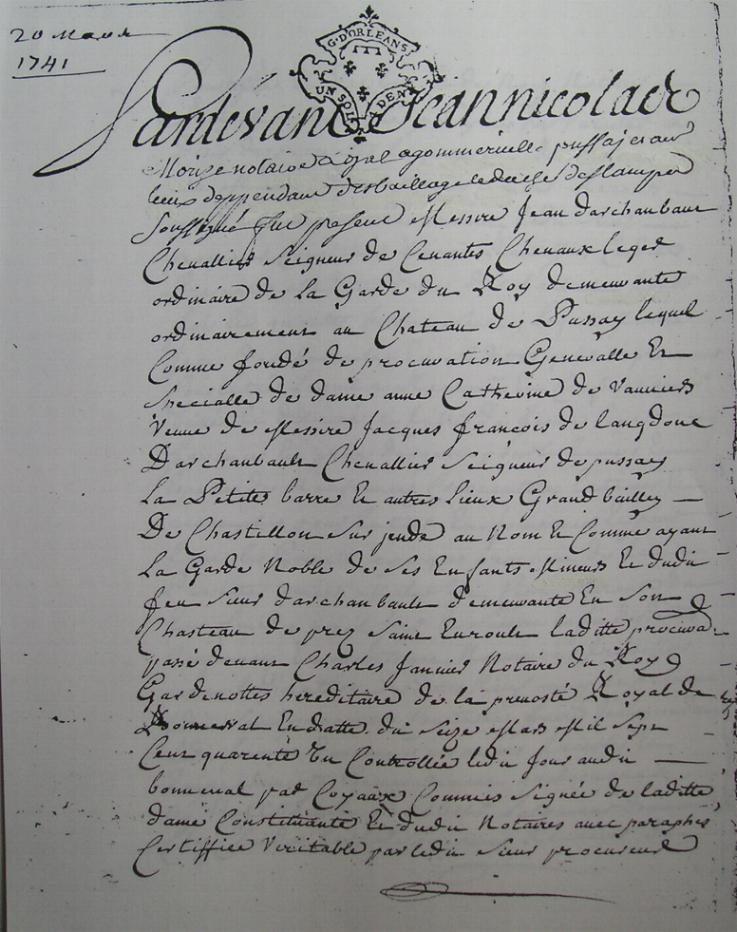 20 Mars
1741
G. D'ORLEANS
UN SOL DEN
Pardevant Jean nicolas
notaire Royal a gommerville pussaj et autres
lieux deppendant du baillage de
Soussigné fut present Messire Jean darchambault
Chevallier Seigneur de Cenantes Chevaux leger
ordinaire de la Garde du Roy demeurante
ordinairement au Chateau de Pussay lequel
Comme fondé de procuration Generalle Et
specialle de dame anne Catherine de Vanniers
Veuve de Messire Jacques françois de langdouc
Darchanbault Chevallier Seigneur de pussay
La Petite barre Et autres lieux Grand bailly
De Chastillon sur jende au Nom Et Comme ayant
La Garde Noble de ses Enfants Mineurs Et dudit
feu sieur darchanbault demeurante En son
Chasteau de prez Saint Euroult laditte procura
passé devant Charles Jannier Notaire du Roy
Gardenottes hereditaire de la prevosté Royal de
Bonneval En datte du Seize Mars Mil Sept
Cent quarente Un Controllée ledit Jour audit
bonneval par Coyaux Commis Signée de laditte
dame Constituante Et dudit Notaires avec paraphes
Certiffiée Veritable par ledit Sieur procureur